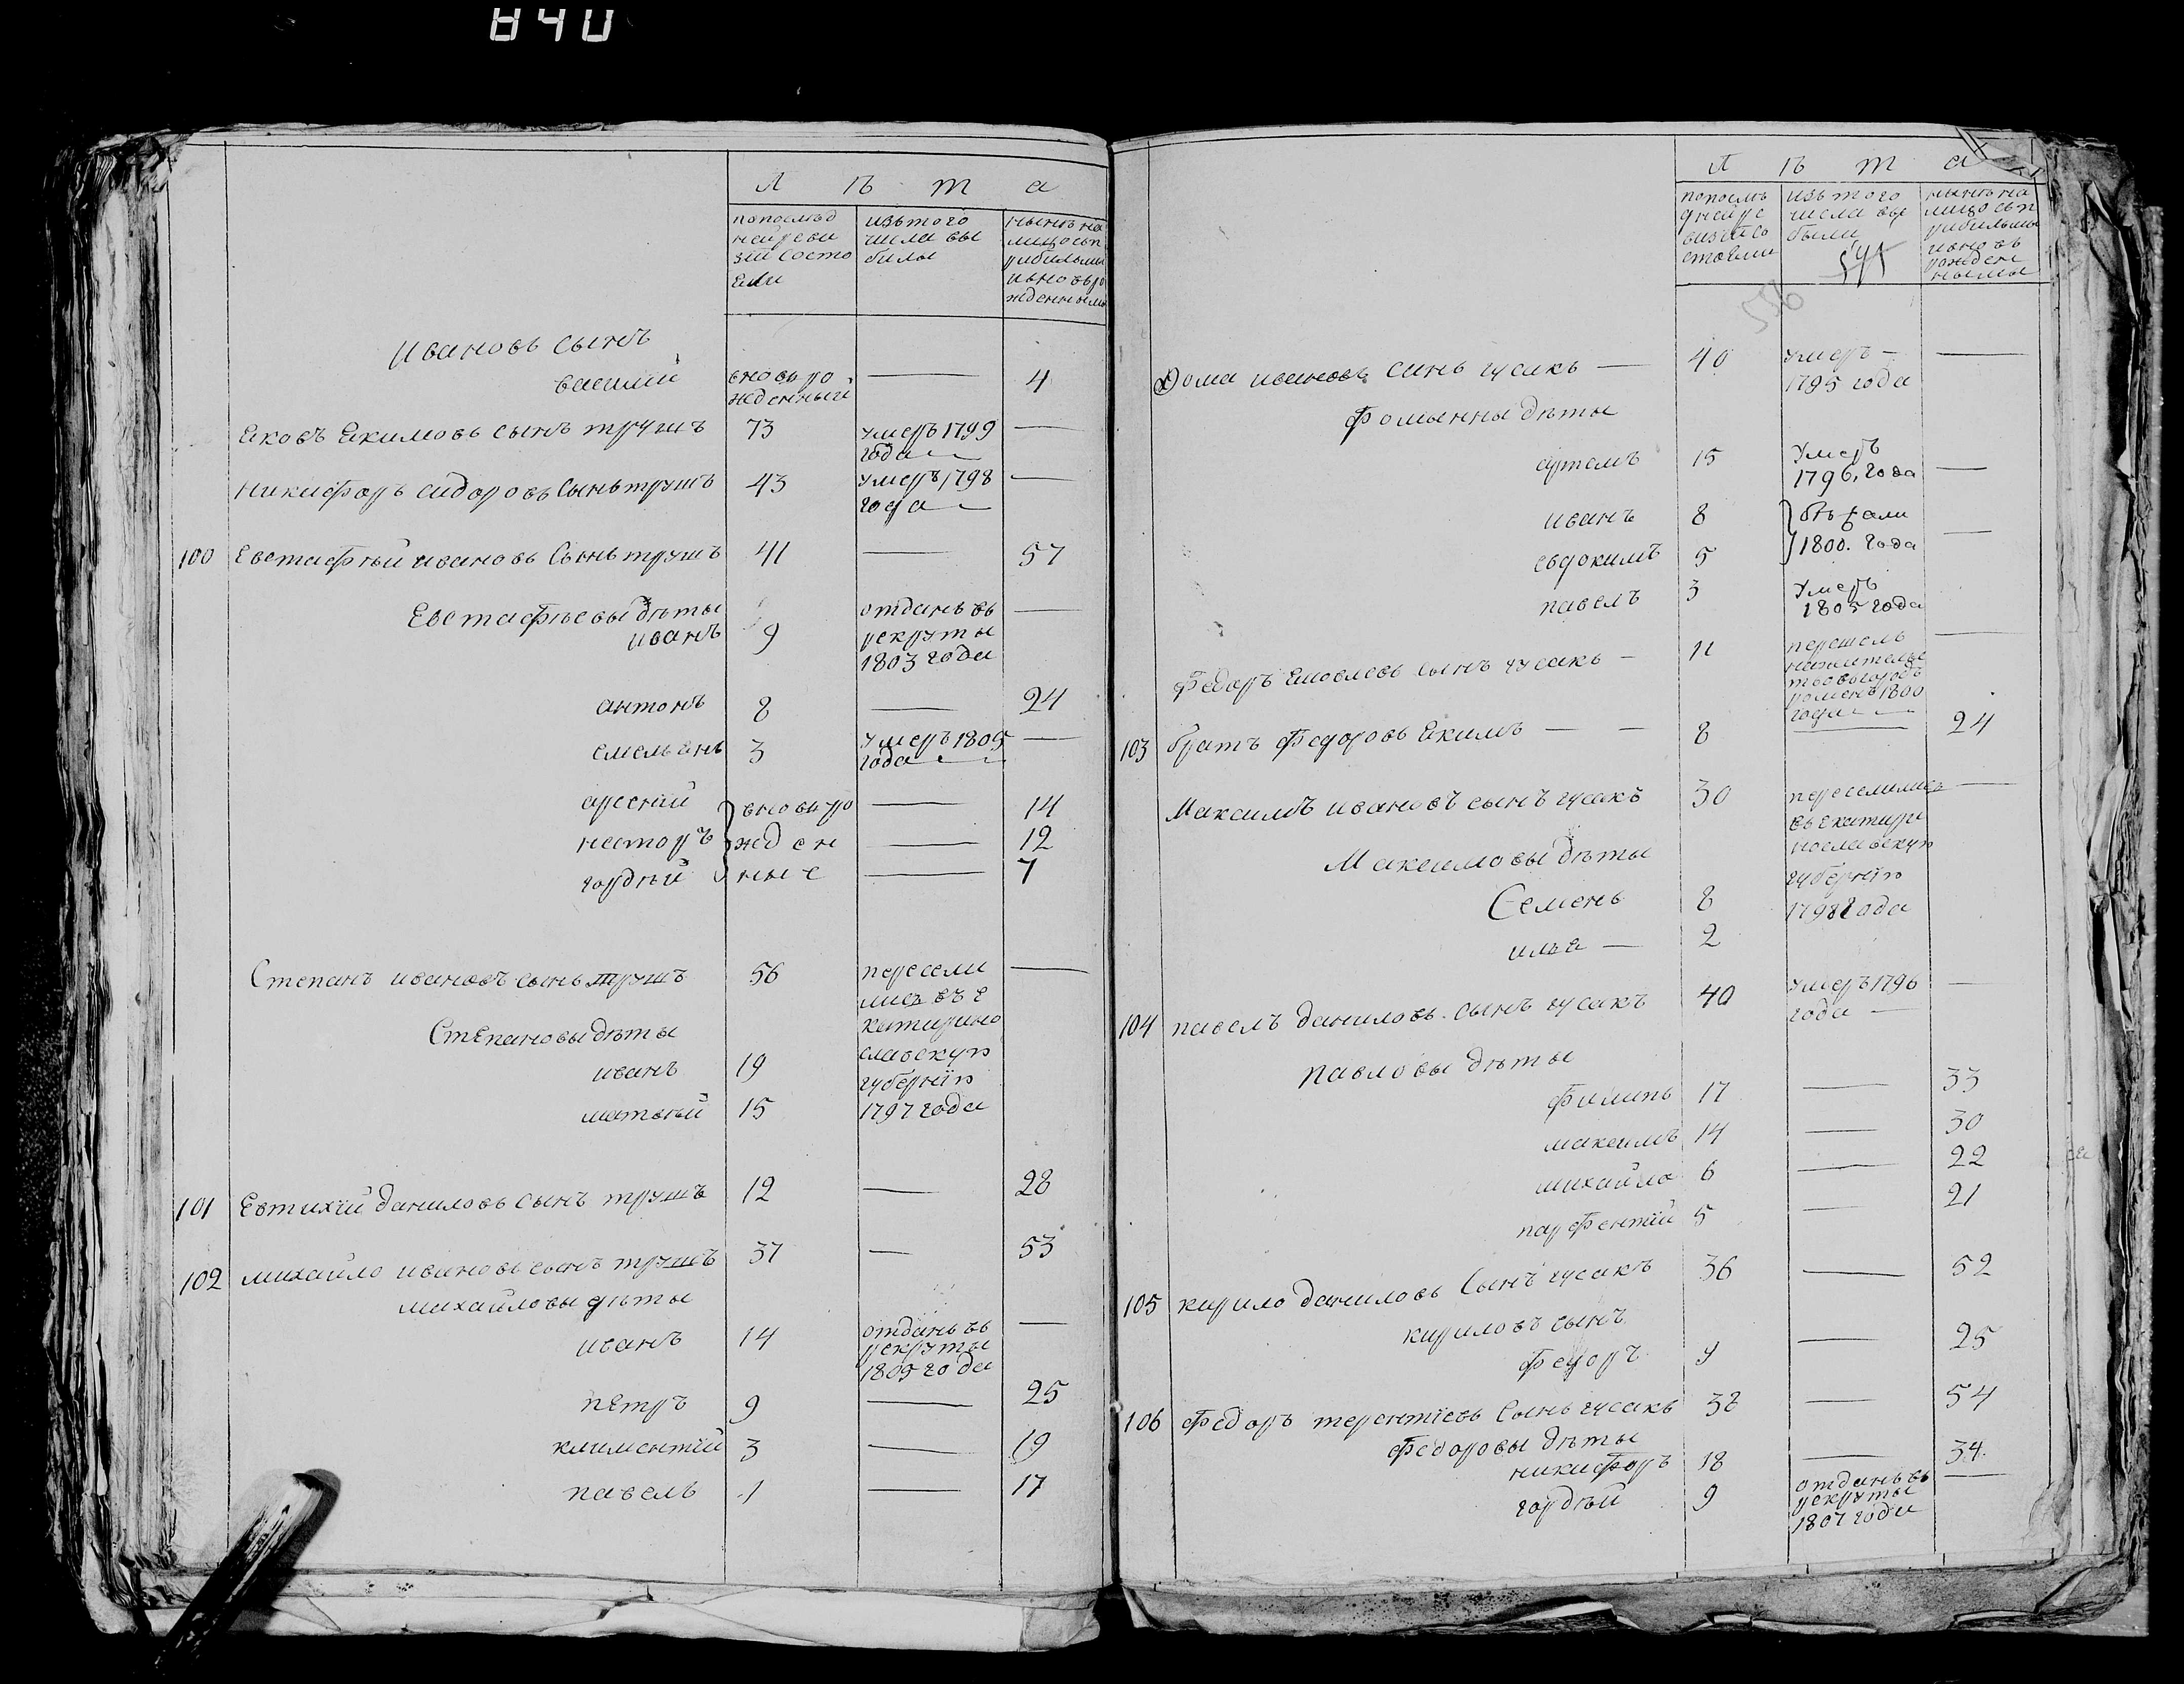 840
Л ѣ т а
попослѣд
ней реви
зїи состо
Ели
изътого
числа вы
были
нынѣ на
лицо съп
рибылыми
ивновьро
жденными
Ивановъ сынъ
василий вновь ро
жденный — 4
Яковъ Якимовъ сынъ трушъ 73 умеръ 1799
года —
никифоръ сидоровъ Сынъ трушъ 43 умеръ 1798
года —
100 Евстафѣй ивановъ Сынъ трушъ 41 — 57
Евстафъевы дѣты
иванъ 9 отданъ въ
рекруты
1803 года —
антонъ 8 — 24
емельянъ 3 умеръ 1805
года —
арсений вновь ро — 14
несторъ жден — 12
гордѣй нне — 7
Степанъ ивановъ сынъ трушъ 56 пересели
лись въ Е
катирино
славскую
губернїю
1797 года —
Степановы дѣты
иванъ 19
матвѣй 15
101 Евтихїй даниловъ сынъ трушъ 12 — 28
102 михайло ивановъ сынъ трушъ 37 — 53
михайловы дѣты
иванъ 14 отданъ въ
рекруты
1805 года —
пЕтръ 9 — 25
климентїй 3 — 19
павелъ 1 — 17
Л ѣ т а
попослѣ
дней ре
визїи со
стояли
изъ того
числа вы
были
нынѣ на
лицо съп
рибылымы
ивновъ
рожден
нымы
545
556
Фома ивановъ синъ гусакъ — 40 умеръ —
1795 года —
Фомынны дѣты
артемъ 15 Умеръ
1796. года —
иванъ 8
евдокимъ 5 бѣжали
1800. года —
павелъ 3 Умеръ
1805 года
Федоръ Яковлевъ сынъ гусакъ — 11 перешелъ
нажителъс
тво въ городъ
роменъ 1800
года —
103 братъ Федоровъ Якимъ — — 8 — 24
Максимъ ивановъ сынъ гусакъ 30 переселились
въ Екатири
нославскую
губернїю
1798 года —
Максимовы дѣты
Семенъ 8
илъя — 2
104 павелъ даниловъ сынъ гусакъ 40 умеръ 1796
года — —
павловы дѣты
филипъ 17 — 33
максимъ 14 — 30
михайло 6 — 22
парфентїй 5 — 21
105 кирило даниловъ Сынъ гусакъ 36 — 52
кириловъ сынъ
федоръ 9 — 25
106 Федоръ терентїевъ Сынъ гусакъ 38 — 54
Федоровы дѣты
никифоръ 18 — 34.
гордѣй 9 отданъ въ
рекруты
1807 года —